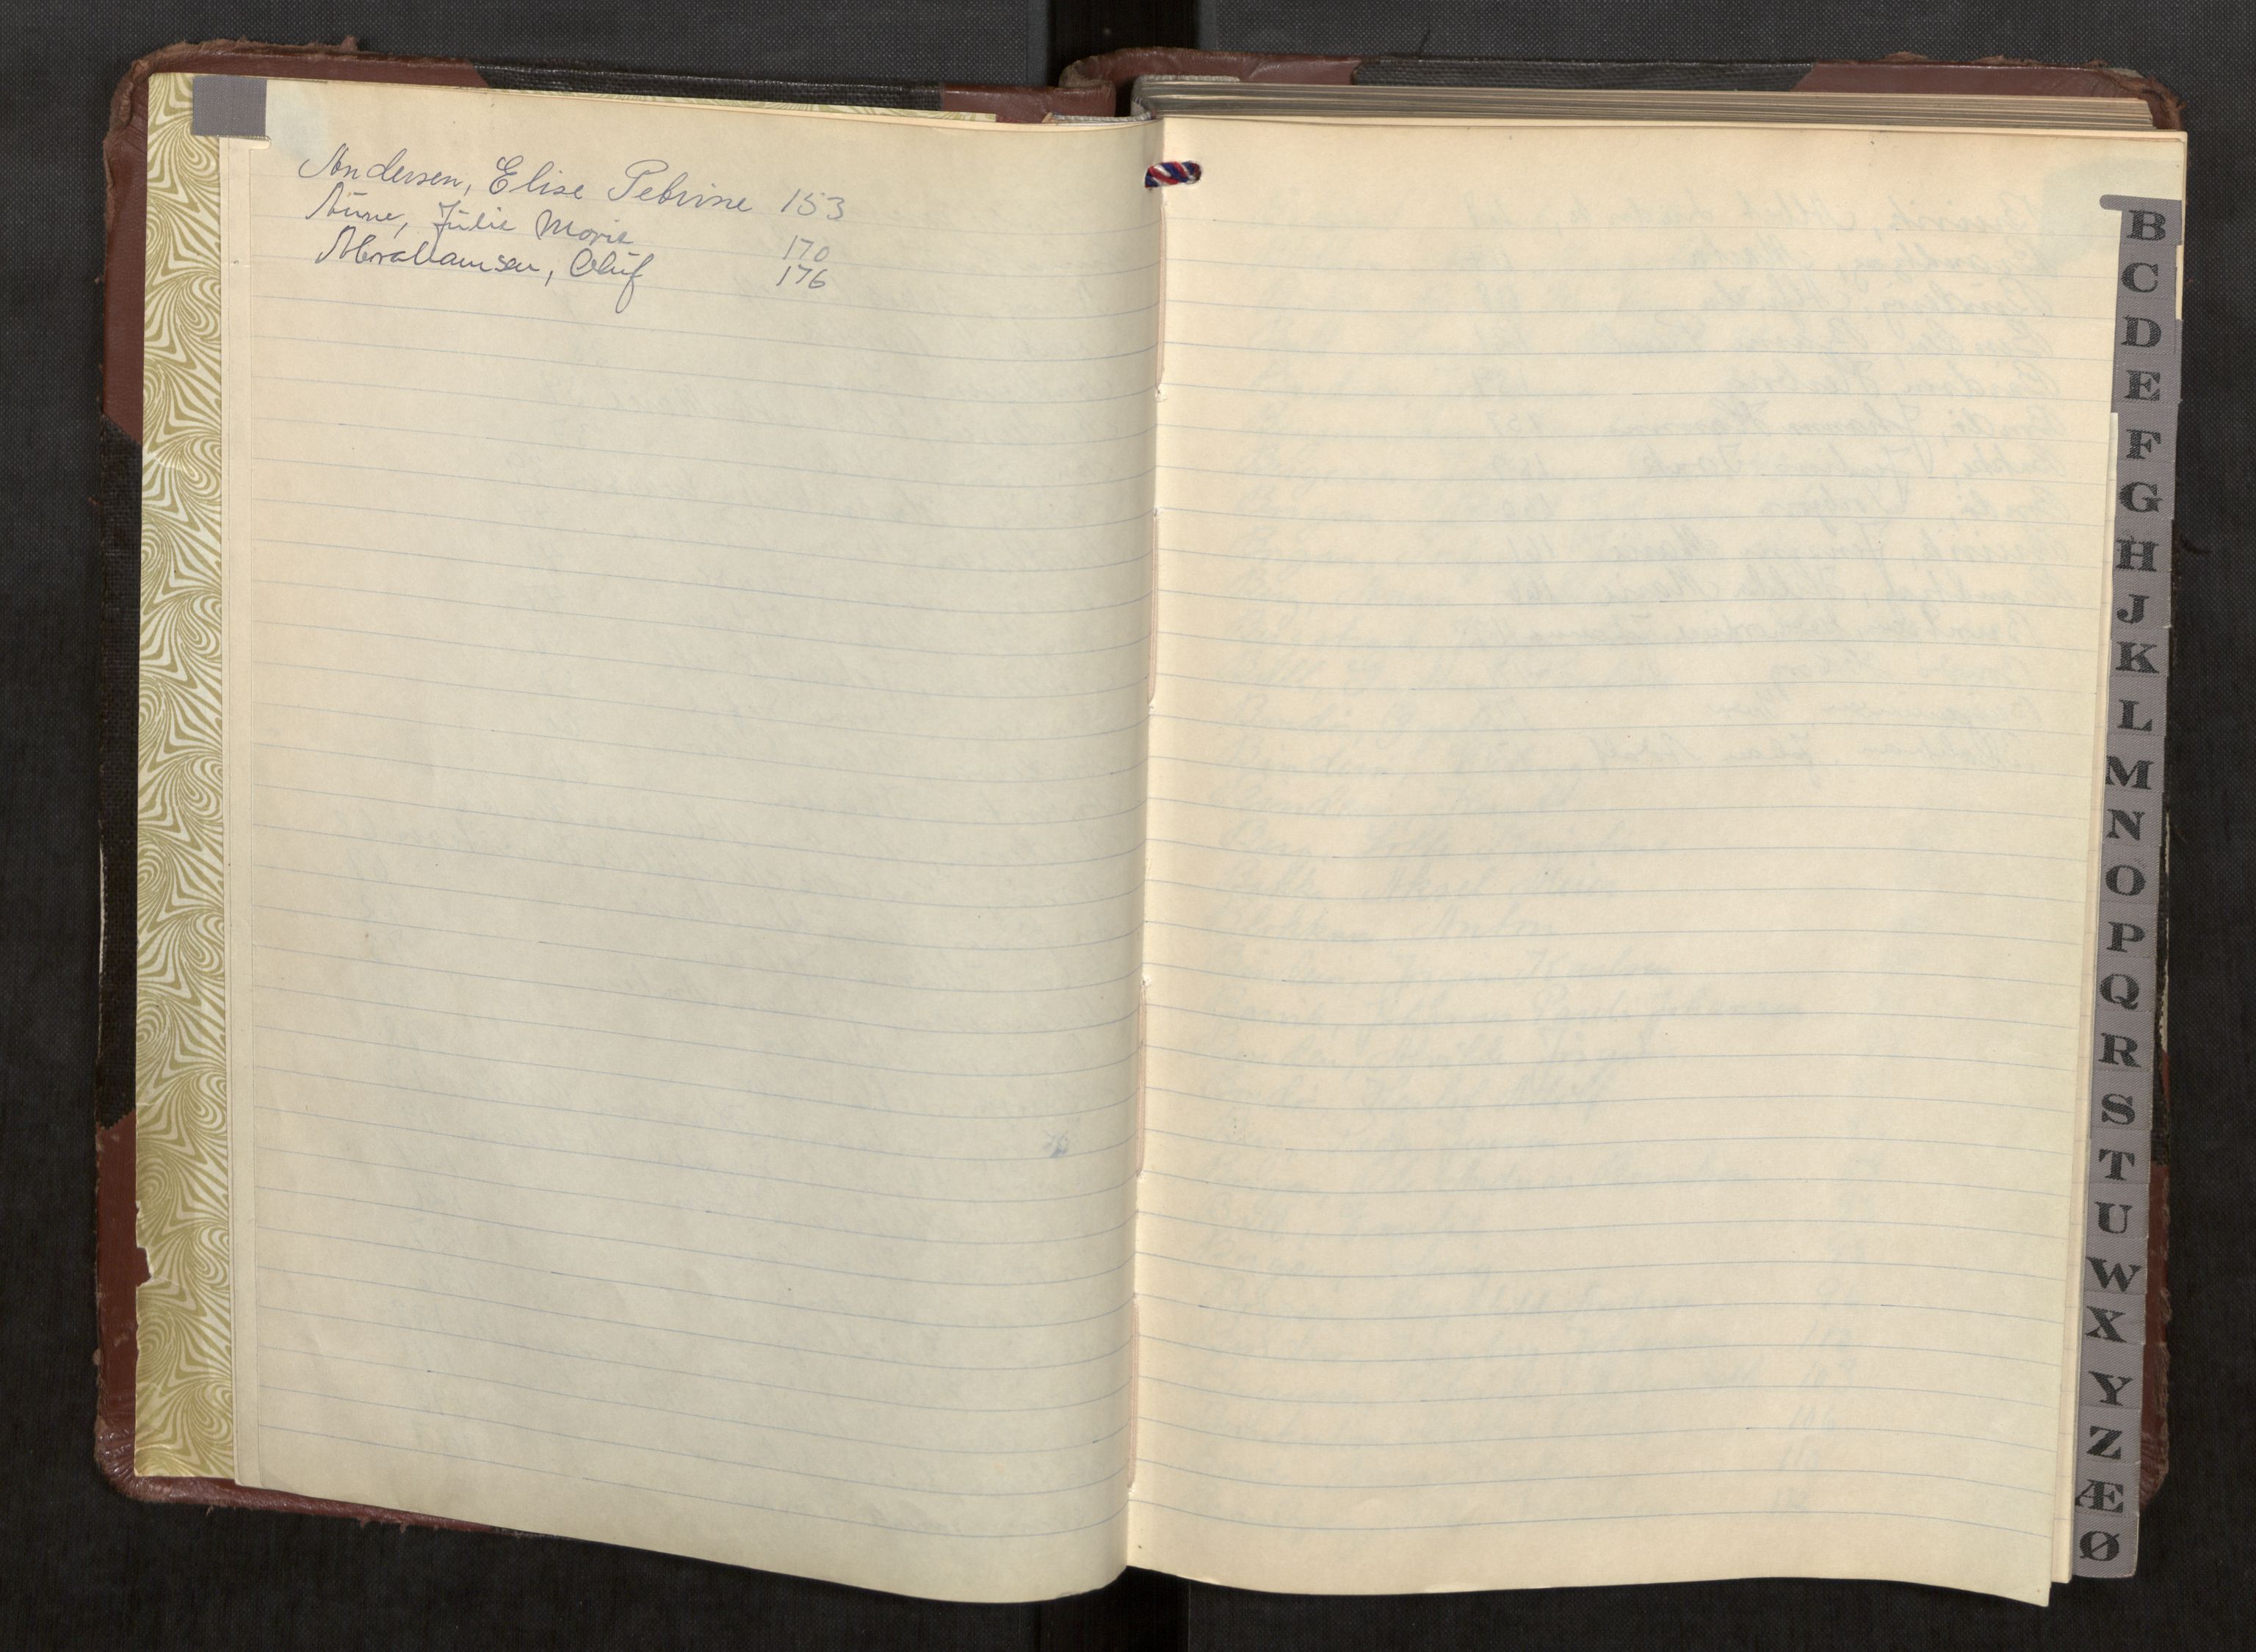 Andersen, Elise Petrine 153
Aune, Julie Marie 170
Abrahamsen, Oluf 176
B
C
D
E
F
G
H
J
K
L
M
N
O
P
Q
R
S
T
U
W
X
Y
Z
Æ
Ø